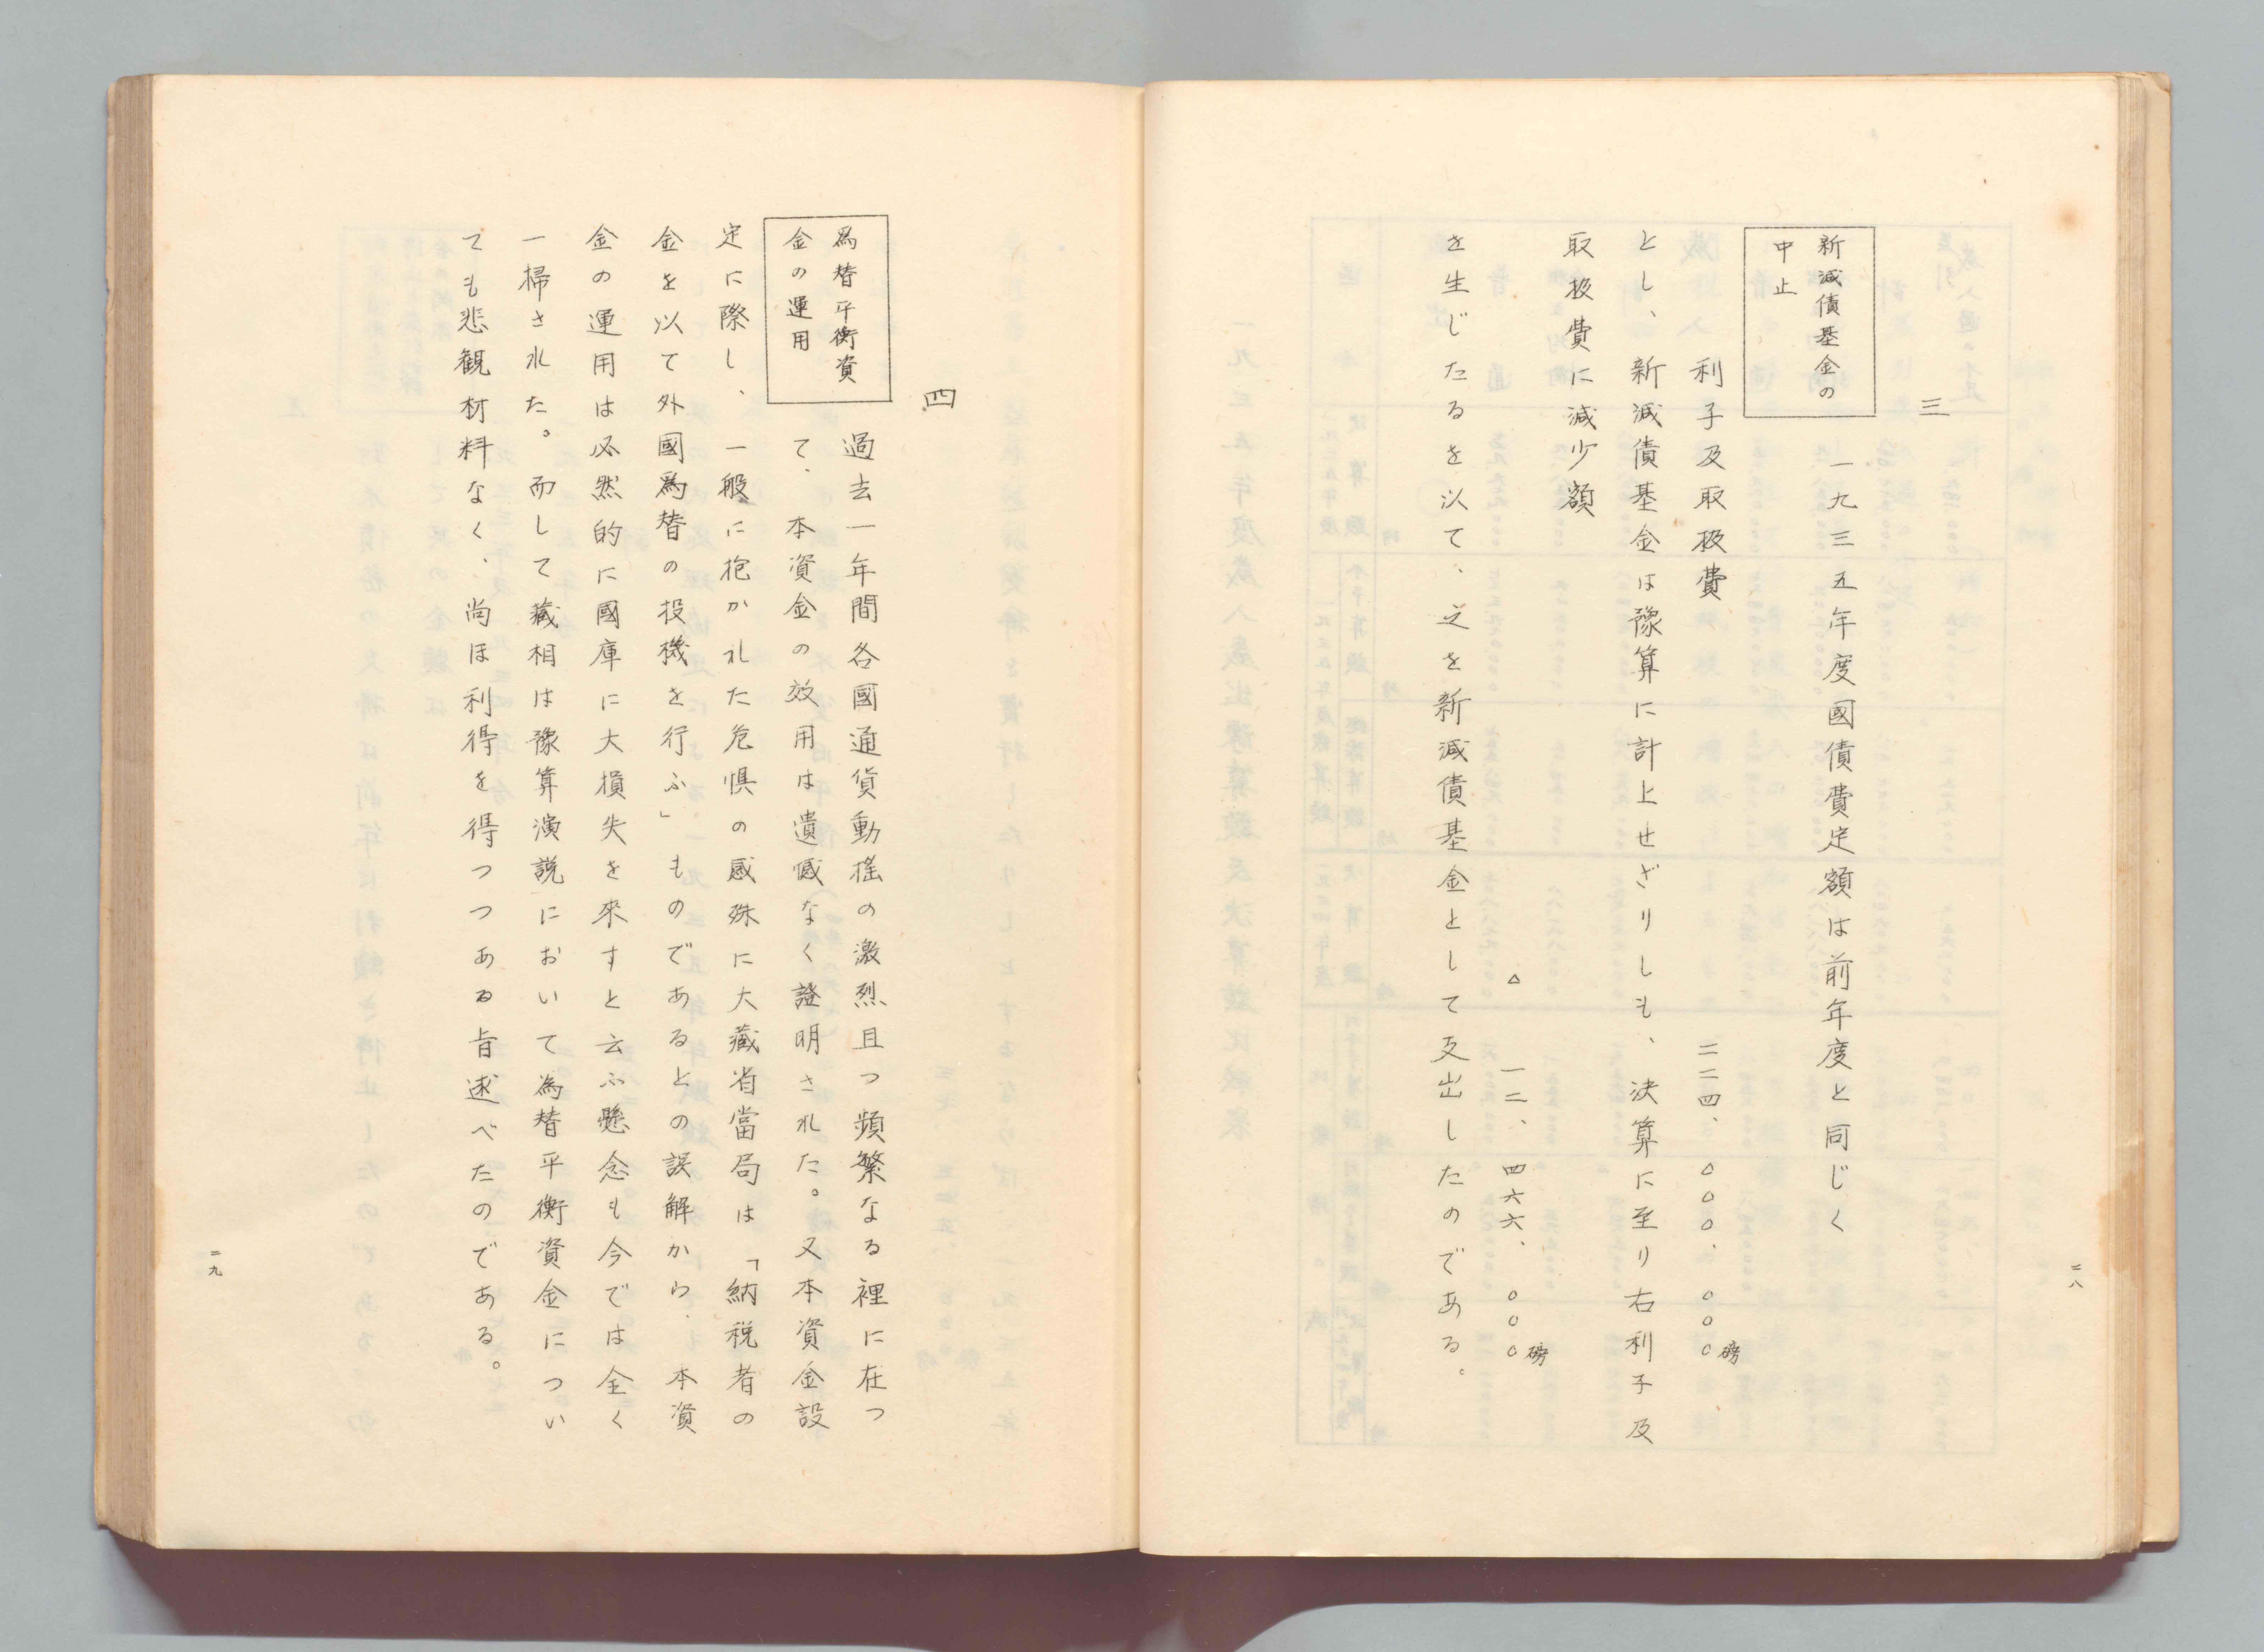 三
新減債基金の
中止
一九三五年度國債費定額は前年度と同じく
利子及取扱費
二二四、〇〇〇、〇〇〇磅
とし、新減債基金は豫算に計上せざりしも、決算に至り右利子及
取扱費に減少額
△ 一二、四六六、〇〇〇磅
を生じたるを以て、之を新減債基金として支出したのである。
二八
四
為替平衡資
金の運用
過去一年間各國通貨動揺の激烈且つ頻繁なる裡に在つ
て、本資金の效用は遺憾なく證明された。又本資金設
定に際し、一般に抱かれた危惧の感殊に大藏省當局は「納税者の
金を以て外國爲替の投機を行ふ」ものであるとの誤解から、本資
金の運用は必然的に國庫に大損失を來すと云ふ懸念も今では全く
一掃された。而して藏相は豫算演説において為替平衡資金につい
ても悲観材料なく、尚ほ利得を得つつある旨述べたのである。
二九